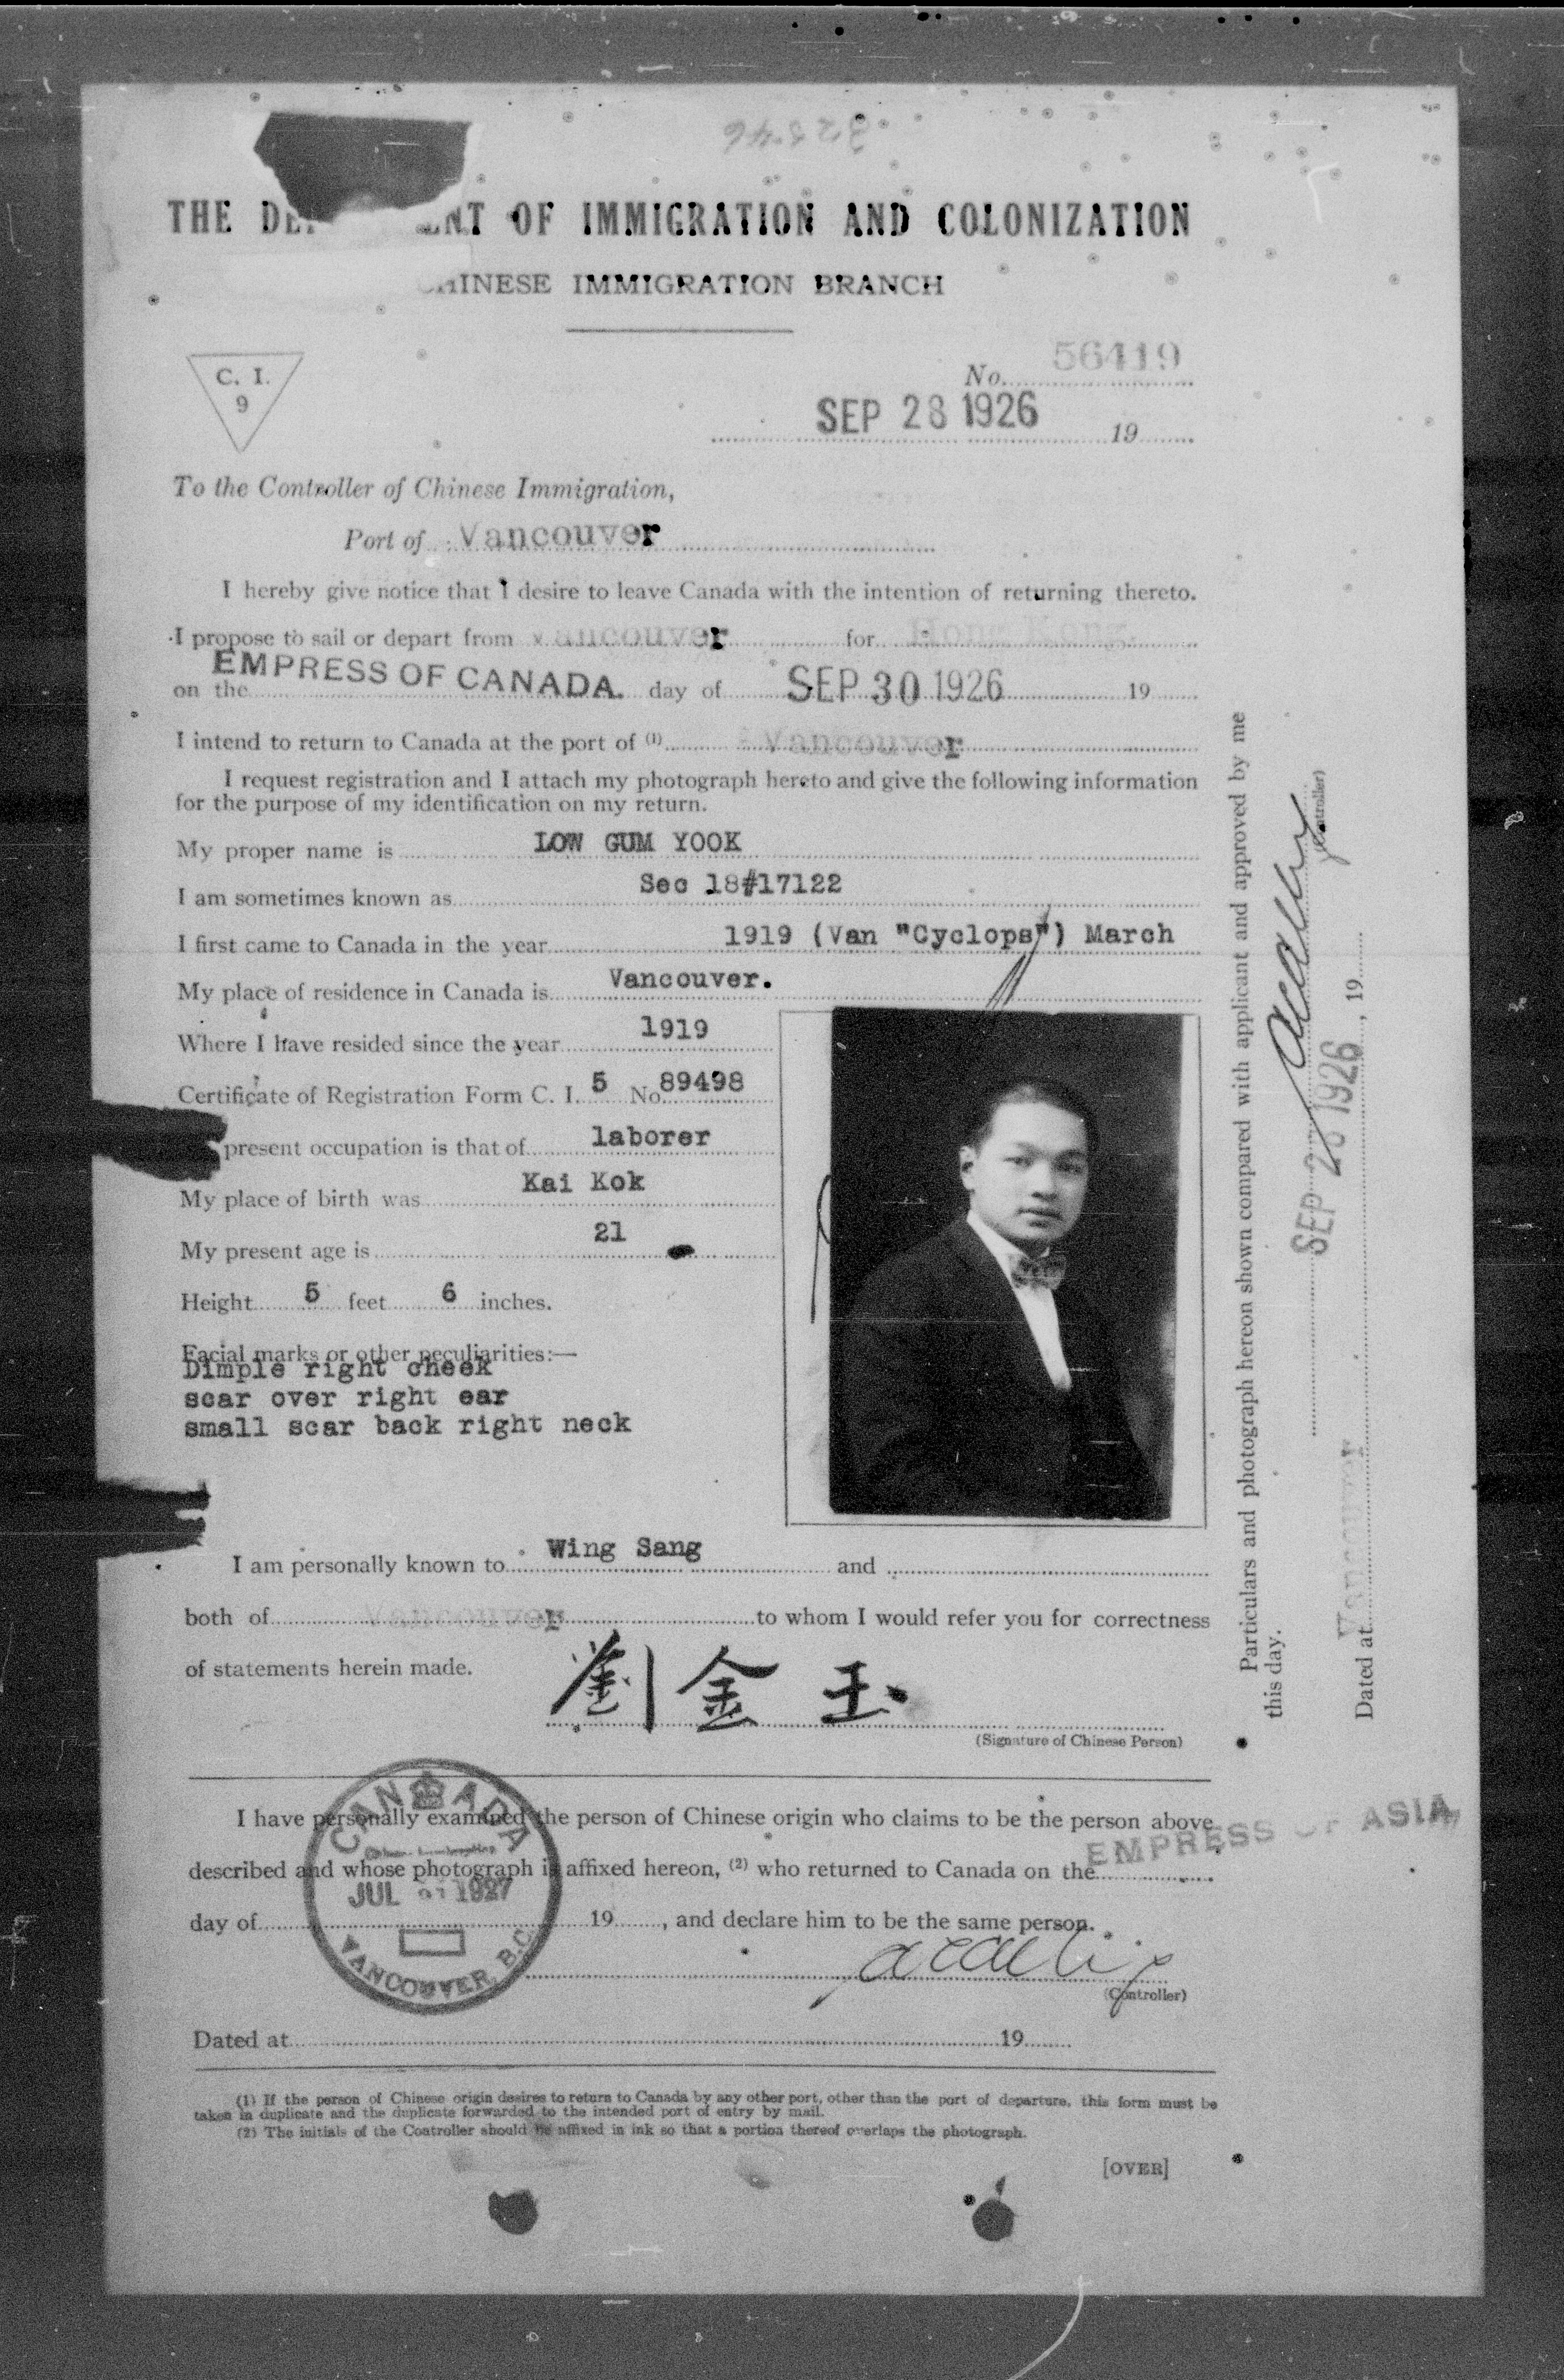 32546
THE DE ENT OF IMMIGRATION AND COLONIZATION
HINESE IMMIGRATION BRANCH
C. I.
9
No. 56419
SEP 28 1926 19
To the Controller of Chinese Immigration,
Port of Vancouver
I hereby give notice that I desire to leave Canada with the intention of returning thereto.
I propose to sail or depart from Vancouver for Hong Kong.
EMPRESS OF CANADA.
on the day of SEP 30 1926 19
I intend to return to Canada at the port of (1) Vancouver
I request registration and I attach my photograph hereto and give the following information
for the purpose of my identification on my return.
My proper name is LOW GUM YOOK
I am sometimes known as Sec 18#17122
I first came to Canada in the year 1919 (Van "Cyclops") March
My place of residence in Canada is Vancouver.
Where I have resided since the year 1919
Certificate of Registration Form C. I. 5 No. 89498
present occupation is that of laborer
My place of birth was Kai Kok
My present age is 21
Height 5 feet 6 inches.
Facial marks or other peculiarities:—
Dimple right cheek
scar over right ear
small scar back right neck
I am personally known to Wing Sang and
both of Vancouver to whom I would refer you for correctness
of statements herein made.
劉金玉
(Signature of Chinese Person)
I have personally examined the person of Chinese origin who claims to be the person above
EMPRESS OF ASIA
described and whose photograph is affixed hereon, (2) who returned to Canada on the
day of 19 , and declare him to be the same person.
CANADA
JUL 1927
VANCOUVER, B.C.
(Controller)
Dated at 19
(1) If the person of Chinese origin desires to return to Canada by any other port, other than the port of departure, this form must be
taken in duplicate and the duplicate forwarded to the intended port of entry by mail.
(2) The initials of the Controller should be affixed in ink so that a portion thereof overlaps the photograph.
[OVER]
Particulars and photograph hereon shown compared with applicant and approved by me
this day.
(Controller)
SEP 28 1926
Dated at Vancouver , 19